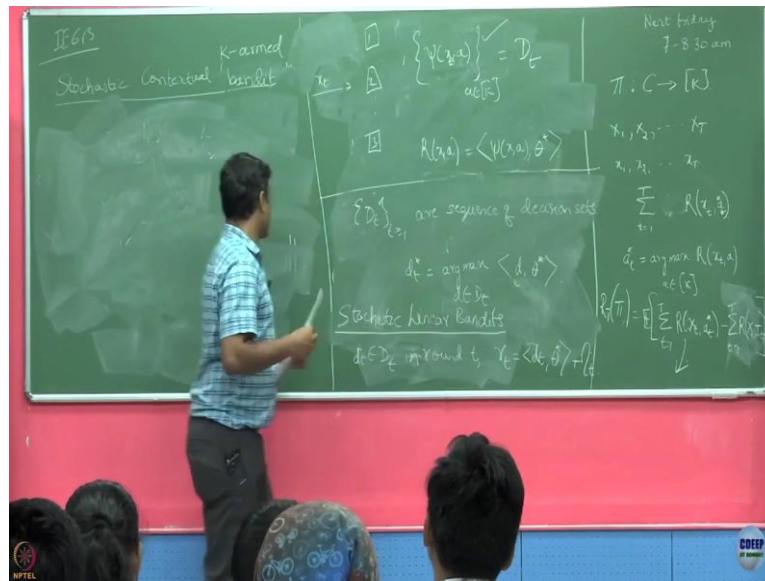 IE613
K-armed
Stochastic Contextual bandit
1
x_t → 2
3
{ψ(x_t,a)}_{a∈[K]} = D_t
R(x,a) = <ψ(x,a), θ*>
{D_t}_{t≥1} are sequence of decision sets
d_t* = argmax_{d∈D_t} <d, θ*>
Stochastic Linear Bandits
d_t ∈ D_t in round t, r_t = <d_t, θ*> + η_t
Next friday
7-8.30 am
Π : C → [K]
x_1, x_2, ... x_T
x_1, x_2, ... x_T
∑_{t=1}^{T} R(x_t, a_t*)
a_t* = argmax_{a∈[K]} R(x_t, a)
R_T(Π) = E[∑_{t=1}^{T} R(x_t, a_t*) - ∑
NPTEL
CDEEP
IIT BOMBAY